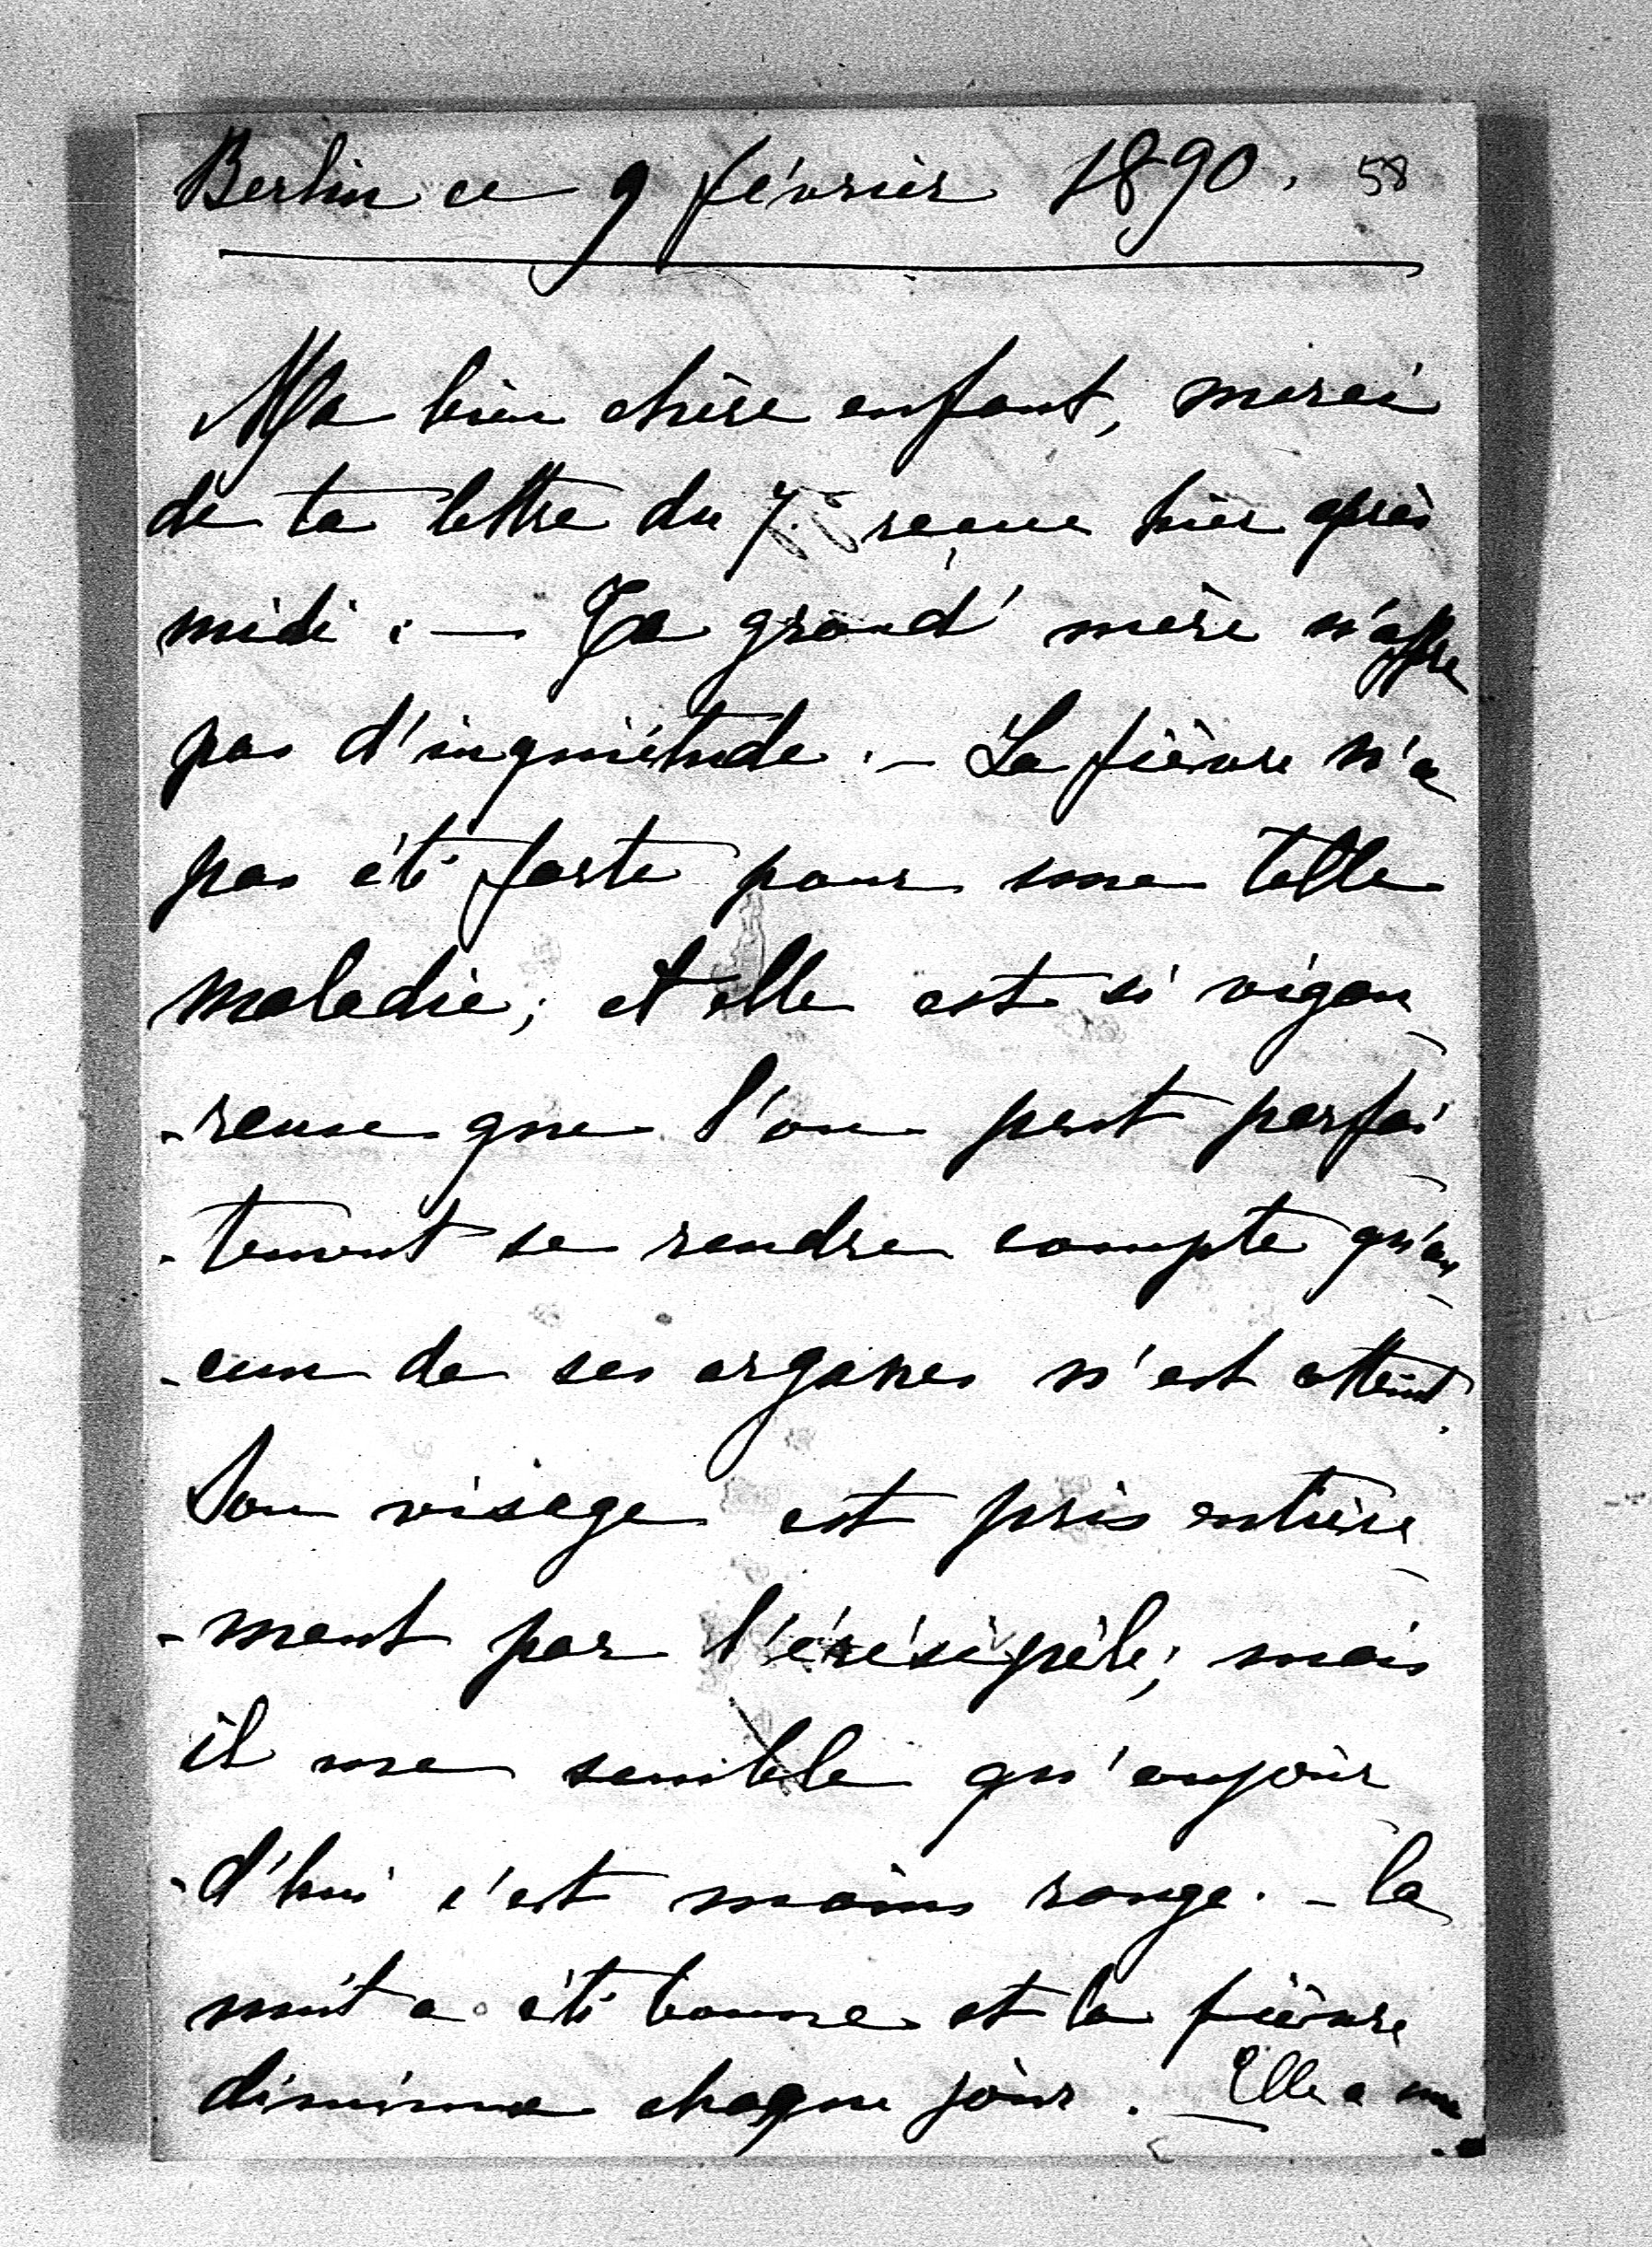 Berlin ce 9 février 1890. 58
Ma bien chère enfant, merci
de ta lettre du 7. reçue hier après
midi. — Ta grand' mère n'offre
pas d'inquiétude. — La fièvre n'a
pas été forte pour une telle
maladie; et elle est si vigou-
-reuse que l'on peut parfai-
-tement se rendre compte qu'au-
-cun de ses organes n'est atteint.
Son visage est pris entière-
-ment par l'érésipèle; mais
il me semble qu'aujour-
-d'hui c'est moins rouge. — la
nuit a été bonne et la fièvre
diminue chaque jour. — Elle a une